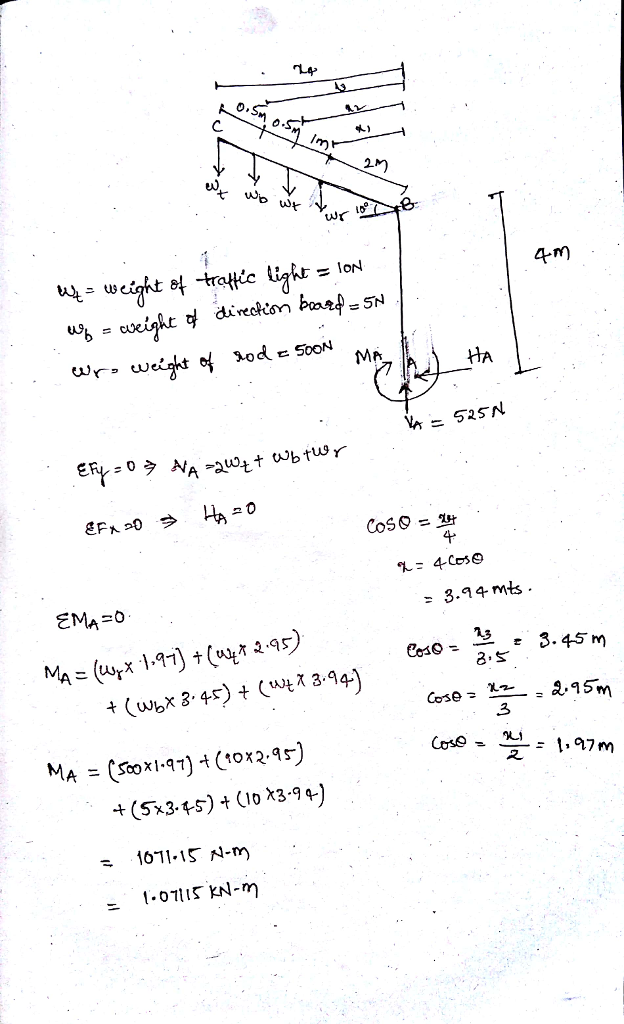 x4
x3
0.5m
x2
0.5m
C
x1
1m
2m
wt
wb
wt
wr
10°
B
4m
wt = weight of traffic light = 10N
wb = weight of direction board = 5N
wr = weight of rod = 500N
MA
A
HA
VA = 525N
ΣFy=0 ⇒ VA =2wt + wb+wr
ΣFx=0 ⇒ HA=0
Cosθ = x4/4
x = 4Cosθ
= 3.94mts.
ΣMA=0
MA = (wr x 1.97) + (wt x 2.95)
+ (wb x 3.45) + (wt x 3.94)
Cosθ = x3/3.5 = 3.45m
Cosθ = x2/3 = 2.95m
Cosθ = x1/2 = 1.97m
MA = (500x1.97) + (10x2.95)
+ (5x3.45) + (10 x3.94)
= 1071.15 N-m
= 1.07115 KN-m